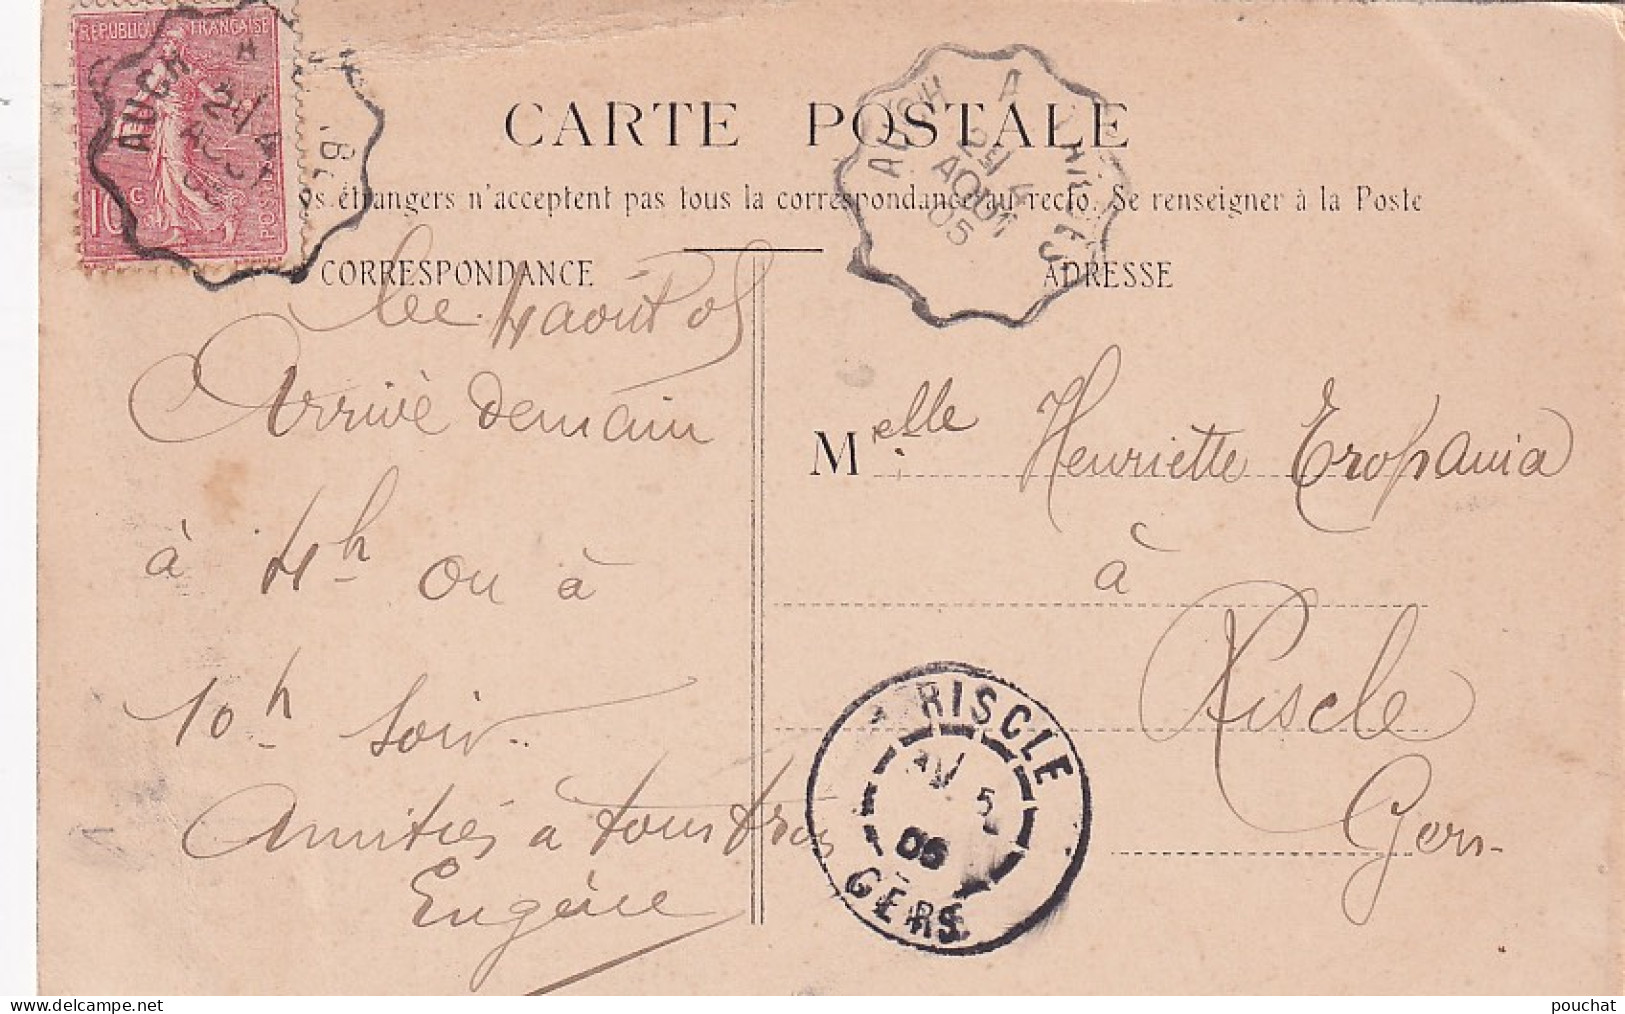 REPUBLIQUE FRANÇAISE
10 c
POSTES
AUCH
CARTE POSTALE
AUCH A
4
AOUT
05
étrangers n'acceptent pas tous la correspondance au recto. Se renseigner à la Poste
CORRESPONDANCE
ADRESSE
Le 4 août 05
Arrive demain
à 4h ou à
10h soir..
Amitiés à tous trois
Eugénie
Melle Henriette
à
Riscle
Gers-
RISCLE
5
05
GERS
pouchat